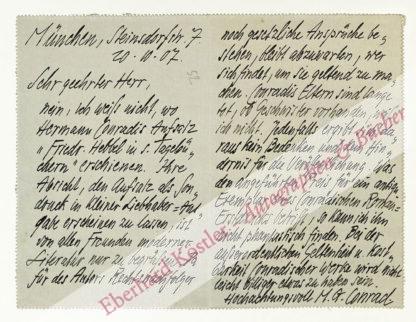 München, Steinsdorfstr. 7.
20.10.07.
Sehr geehrter Herr,
nein, ich weiß nicht, wo
Hermann Conradis Aufsatz
"Friedr. Hebbel in s. Tagebü-
chern" erschienen. Ihre
Absicht, den Aufsatz als Son-
druck in kleiner Liebhaber=Aus-
gabe erscheinen zu lassen, ist
von allen Freunden moderner
Literatur nur zu begrüßen. Ob
für des Autors Rechtsnachfolger
noch gesetzliche Ansprüche be-
stehen, bleibt abzuwarten, wer
sich findet, um sie geltend zu ma-
chen. Conradis Eltern sind lange
tot, ob Geschwister vorhanden, weiß
ich nicht. Jedenfalls ergibt sich da-
raus kein Bedenken und kein Hin-
dernis für die Veröffentlichung. Was
den angeführten Preis für ein antiqu.
Exemplar des Conradischen Roman-
betrifft, so kann ich ihn
nicht phantastisch finden. Bei der
außerordentlichen Seltenheit u. Kost-
barkeit Conradischer Werke wird nicht
leicht billiger etwas zu haben sein.
Hochachtungsvoll M. G. Conrad
Eberhard Köstler Autographen & Bücher